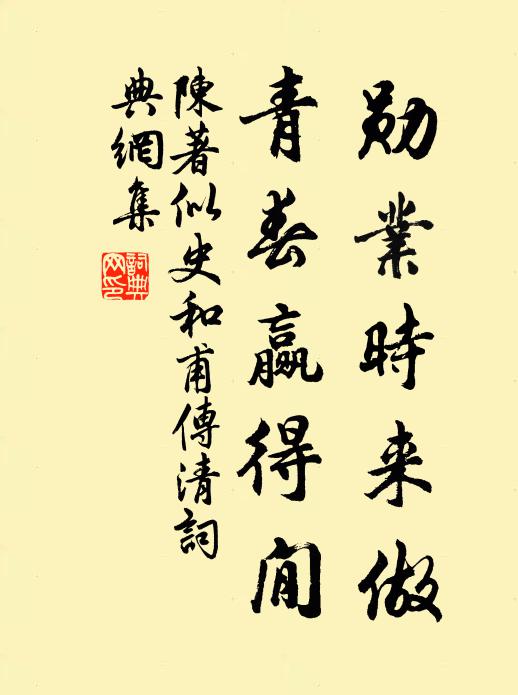 勋業時来做
青春赢得閒
陳著似史和甫傳清詞
典網集
詞典网印